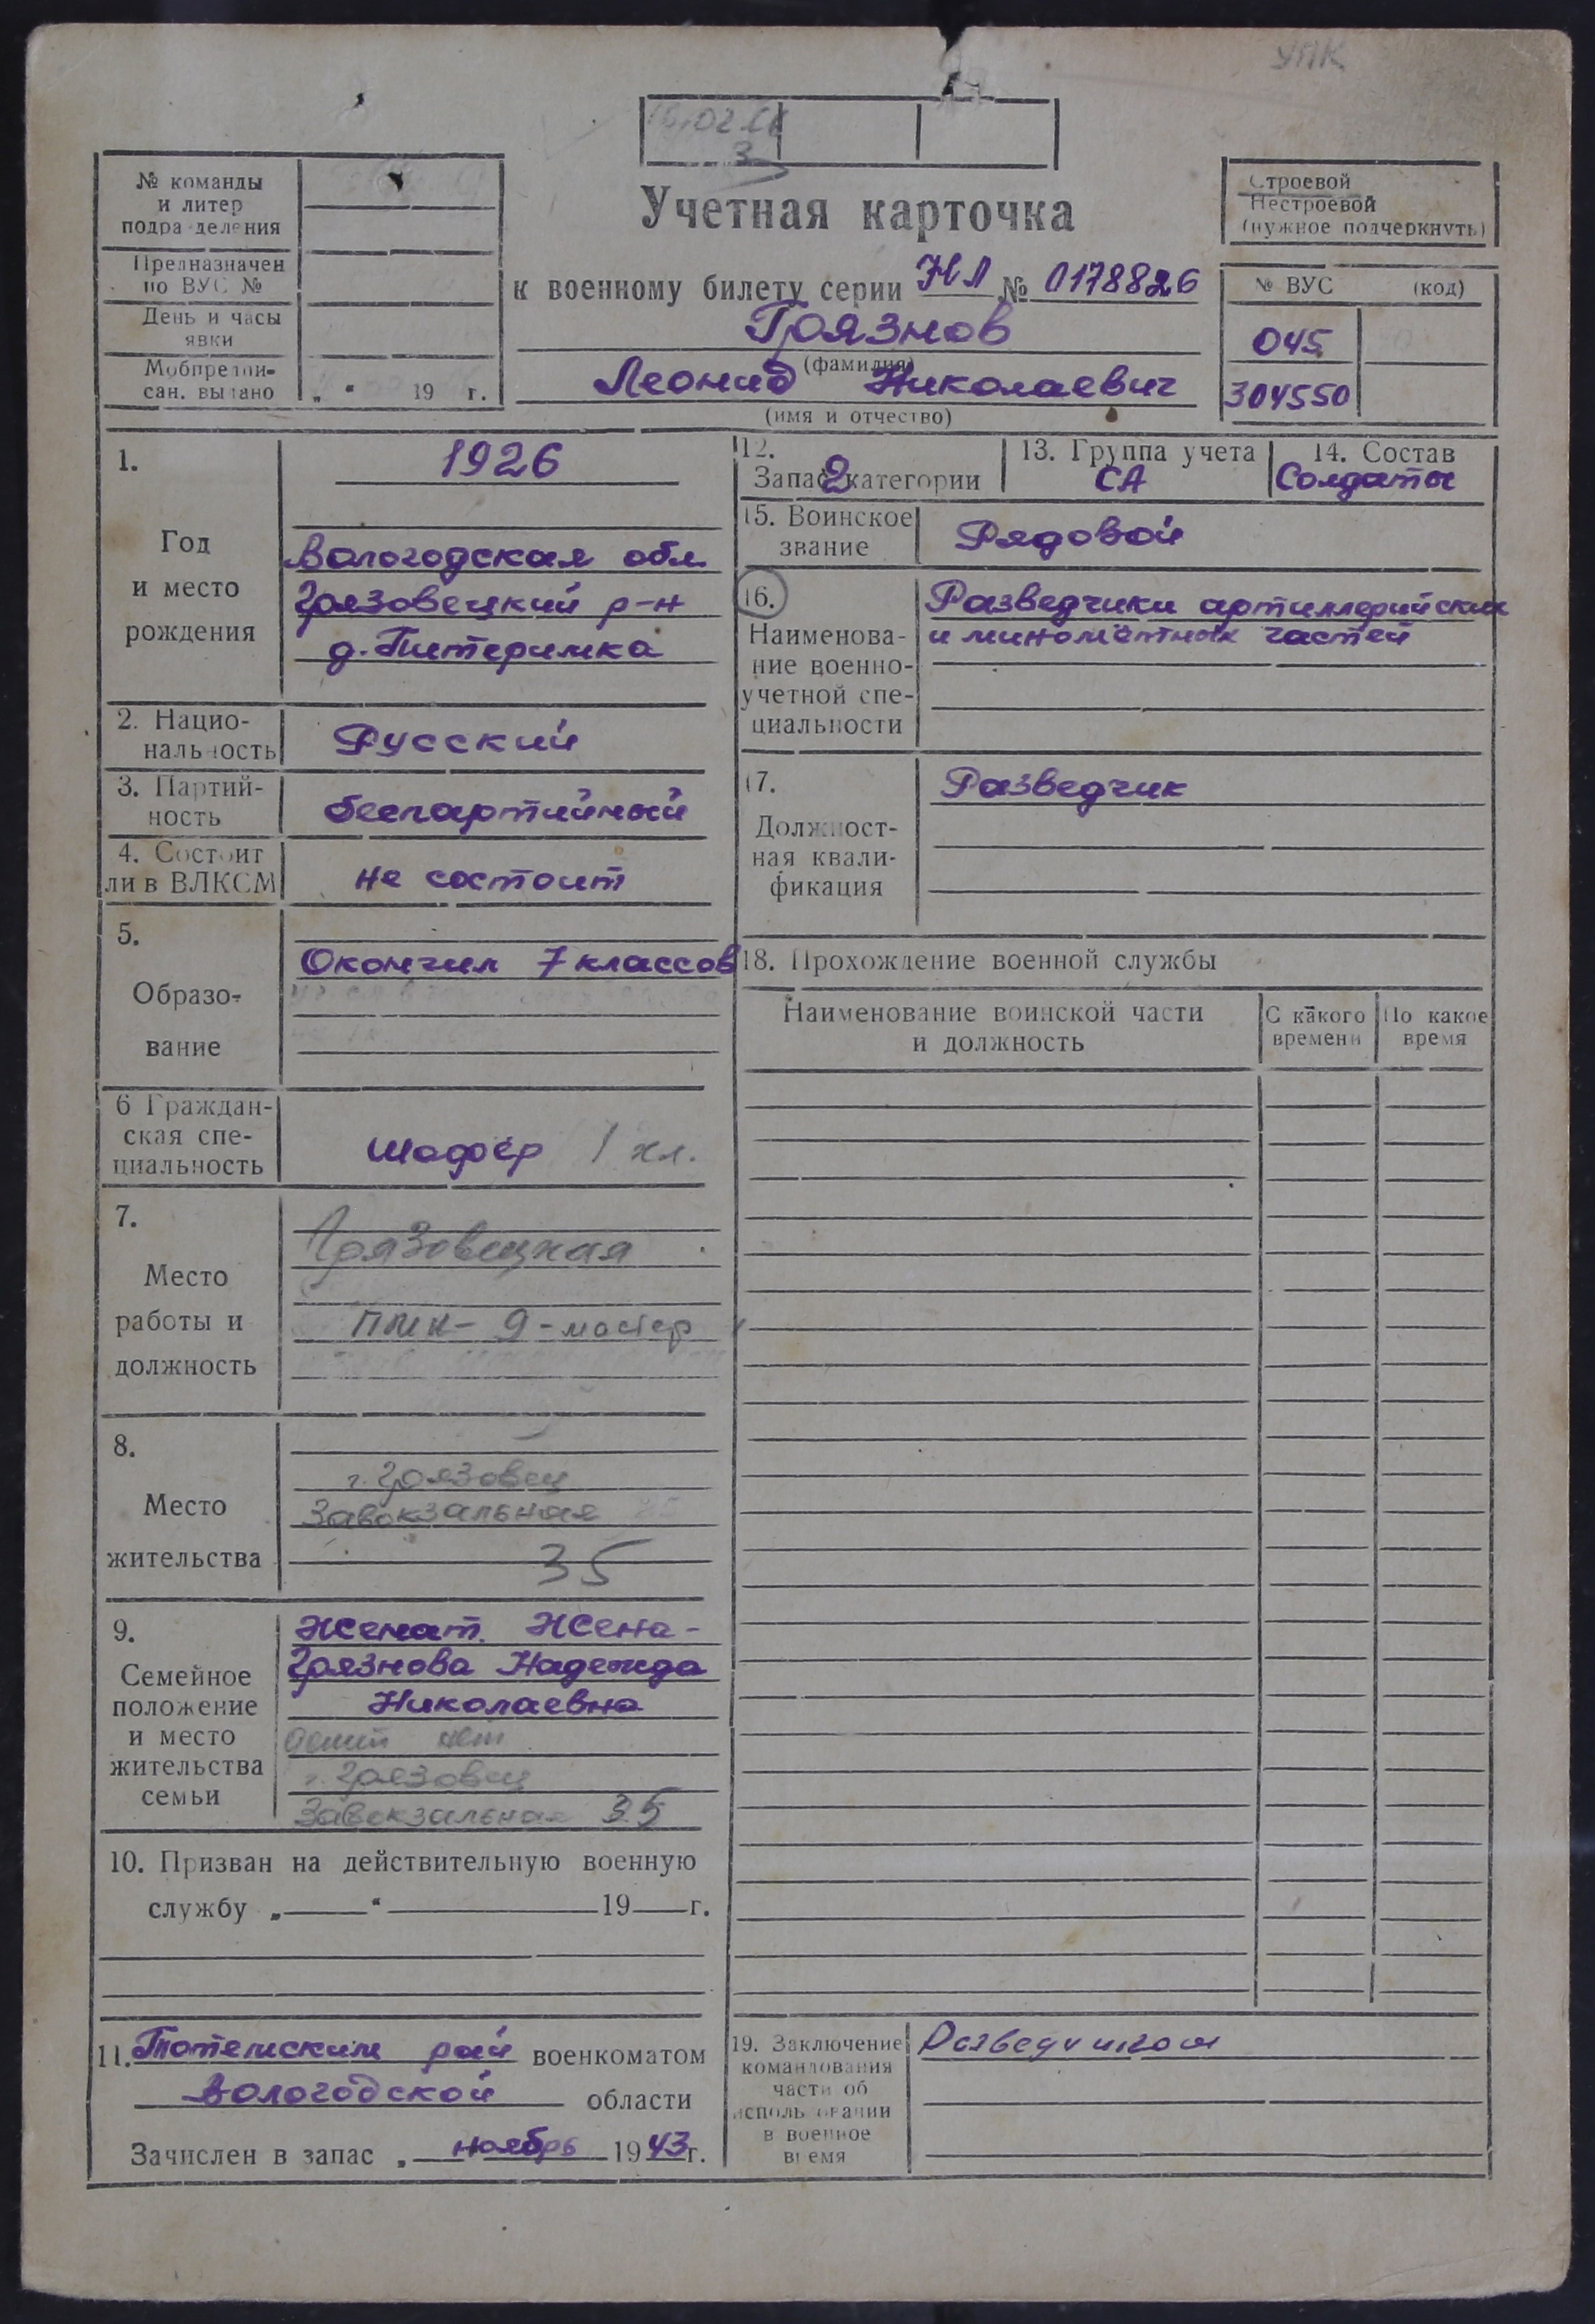 УПК
№ команды
и литер
подразделения
Предназначен
по ВУС №
День и часы
явки
Мобпредпи-
сан. выдано „ “ 19 г.
Учетная карточка
к военному билету серии НЛ № 0178826
Грязнов
(фамилия)
Леонид Николаевич
(имя и отчество)
Строевой
Нестроевой
(нужное подчеркнуть)
№ ВУС (код)
045
304550
1.
Год
и место
рождения
1926
Вологодская обл.
Грязовецкий р-н
д. Питеримка
2. Нацио-
нальность
Русский
3. Партий-
ность
беспартийный
4. Состоит
ли в ВЛКСМ
не состоит
5.
Образо-
вание
Окончил 7 классов
6 Граждан-
ская спе-
циальность
шофёр 1 кл.
7.
Место
работы и
должность
Грязовецкая
ПМК-9-мастер
8.
Место
жительства
г. Грязовец
Завокзальная
35
9.
Семейное
положение
и место
жительства
семьи
Женат. Жена-
Грязнова Надежда
Николаевна
детей нет
г. Грязовец
Завокзальная 35
10. Призван на действительную военную
службу „ “ 19 г.
11. Тотемским рай военкоматом
Вологодской области
Зачислен в запас „ ноябрь 1943г.
12.
Запас 2 категории
13. Группа учета
СА
14. Состав
Солдаты
15. Воинское
звание
Рядовой
16.
Наименова-
ние военно-
учетной спе-
циальности
Разведчики артиллерийских
и миномётных частей
17.
Должност-
ная квали-
фикация
Разведчик
18. Прохождение военной службы
Наименование воинской части
и должность
С какого
времени
По какое
время
19. Заключение
командования
части об
использовании
в военное
время
Разведчиком